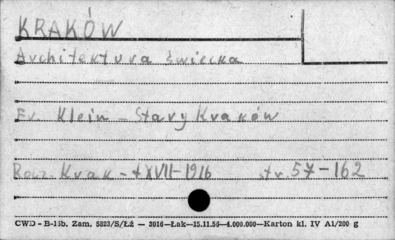 KRAKÓW
Architektura świecka
Fr. Klein - Stary Kraków
Rocz. Krak - t XVII - 1916 str. 57-162
CWD - B-11b. Zam. 5823/S/Łż — 3016—Łak—15.11.56—4.000.000—Karton kl. IV A1/200 g